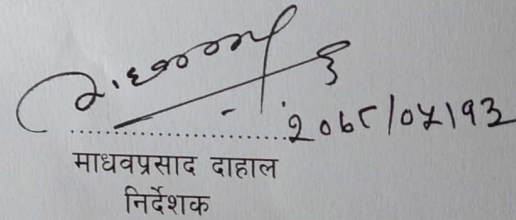 २०७८/०५/१३
माधवप्रसाद दाहाल
निर्देशक